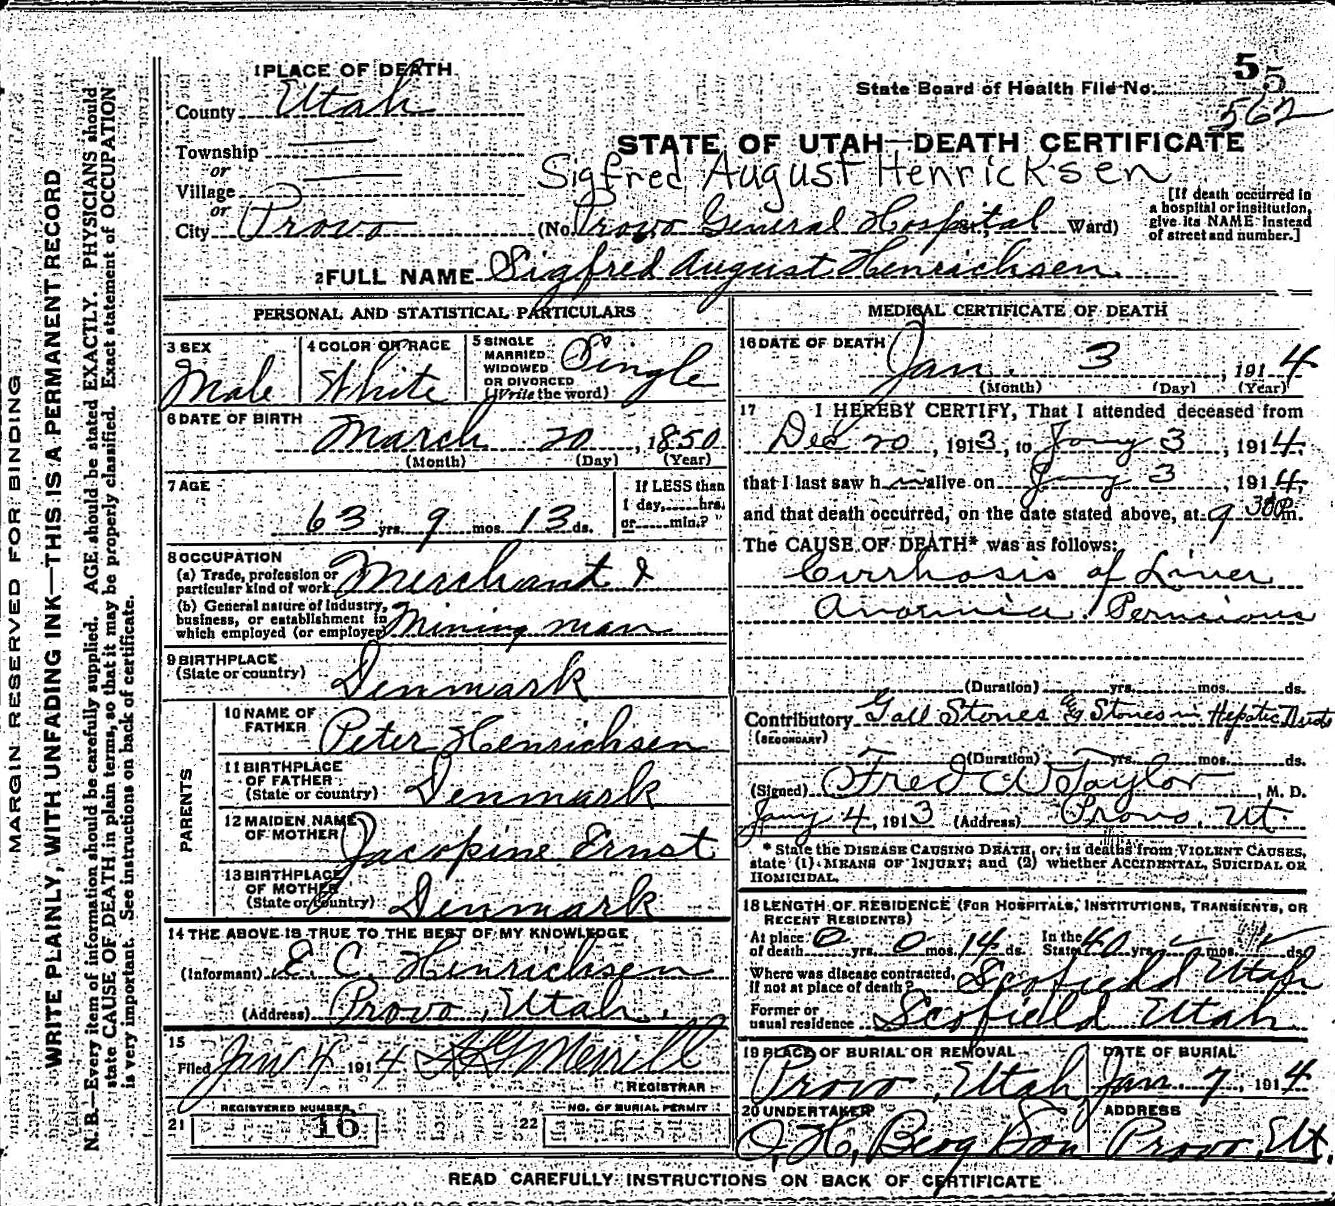 MARGIN RESERVED FOR BINDING
WRITE PLAINLY, WITH UNFADING INK—THIS IS A PERMANENT RECORD
N. B.—Every item of information should be carefully supplied. AGE should be stated EXACTLY. PHYSICIANS should
state CAUSE OF DEATH in plain terms, so that it may be properly classified. Exact statement of OCCUPATION
is very important. See instructions on back of certificate.
1 PLACE OF DEATH
County Utah
Township
or
Village
or
City Provo
State Board of Health File No. 55
562
STATE OF UTAH—DEATH CERTIFICATE
Sigfred August Henricksen
(No. Provo General Hospital St. Ward)
[If death occurred in
a hospital or institution,
give its NAME instead
of street and number.]
2 FULL NAME Sigfred August Henrichsen
PERSONAL AND STATISTICAL PARTICULARS
3 SEX
Male
4 COLOR OR RACE
White
5 SINGLE
MARRIED
WIDOWED
OR DIVORCED
(Write the word)
Single
6 DATE OF BIRTH
March 20, 1850
(Month) (Day) (Year)
7 AGE
63 yrs. 9 mos. 13 ds.
If LESS than
1 day, hrs.
or min.?
8 OCCUPATION
(a) Trade, profession or
particular kind of work Merchant &
(b) General nature of industry,
business, or establishment in
which employed (or employer) Mining man
9 BIRTHPLACE
(State or country) Denmark
PARENTS
10 NAME OF
FATHER Peter Henrichsen
11 BIRTHPLACE
OF FATHER
(State or country) Denmark
12 MAIDEN NAME
OF MOTHER Jacopine Ernst
13 BIRTHPLACE
OF MOTHER
(State or country) Denmark
14 THE ABOVE IS TRUE TO THE BEST OF MY KNOWLEDGE
(Informant) E. C. Henrichsen
(Address) Provo, Utah.
15
Filed Jan 4 1914 Merrill
REGISTRAR
21 REGISTERED NUMBER
16
22 NO. OF BURIAL PERMIT
MEDICAL CERTIFICATE OF DEATH
16 DATE OF DEATH
Jan. 3, 1914
(Month) (Day) (Year)
17 I HEREBY CERTIFY, That I attended deceased from
Dec 20, 1913, to Jany 3, 1914,
that I last saw him alive on Jany 3, 1914,
and that death occurred, on the date stated above, at 9 30 P.m.
The CAUSE OF DEATH* was as follows:
Cirrhosis of Liver
Anaemia Pernicious
(Duration) yrs. mos. ds.
Contributory Gall Stones Stones in Hepatic Ducts
(SECONDARY)
(Duration) yrs. mos. ds.
(Signed) Fred W Taylor, M. D.
Jany 4, 1913 (Address) Provo, Ut.
* State the DISEASE CAUSING DEATH, or, in deaths from VIOLENT CAUSES,
state (1) MEANS OF INJURY; and (2) whether ACCIDENTAL, SUICIDAL OR
HOMICIDAL.
18 LENGTH OF RESIDENCE (FOR HOSPITALS, INSTITUTIONS, TRANSIENTS, OR
RECENT RESIDENTS)
At place
of death 0 yrs. 0 mos. 14 ds. In the
State 40 yrs. mos. ds.
Where was disease contracted,
if not at place of death? Scofield Utah
Former or
usual residence Scofield Utah.
19 PLACE OF BURIAL OR REMOVAL
Provo, Utah
DATE OF BURIAL
Jan. 7, 1914
20 UNDERTAKER
O. H. Berg & Son
ADDRESS
Provo, Ut.
READ CAREFULLY INSTRUCTIONS ON BACK OF CERTIFICATE